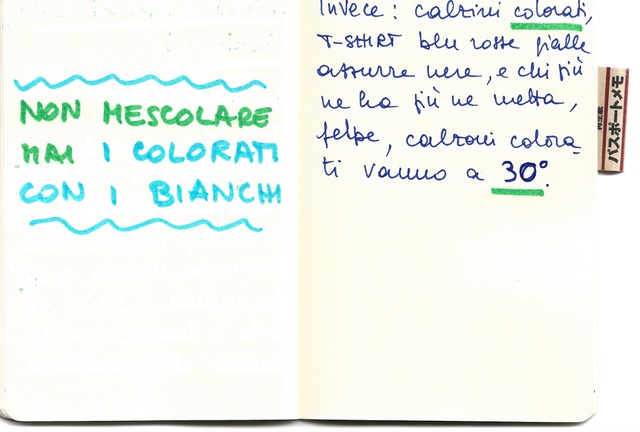 NON MESCOLARE
MAI I COLORATI
CON I BIANCHI
Invece: calzini colorati,
T-SHIRT blu rosse gialle
azzurre nere, e chi più
ne ha più ne metta,
felpe, calzoni colora-
ti vanno a 30°.
パスポートメモ